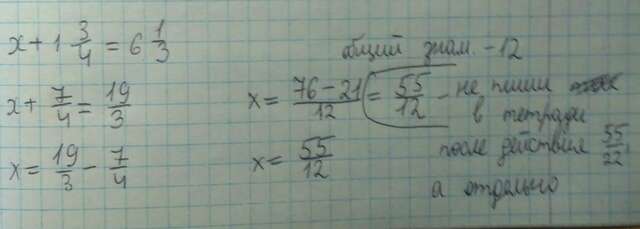 x + 1 3/4 = 6 1/3
x + 7/4 = 19/3
x = 19/3 - 7/4
общий знам. - 12
x = 76 - 21/12 = 55/12 - не пиши
в тетради
x = 55/12
после действия 55/22,
а отдельно